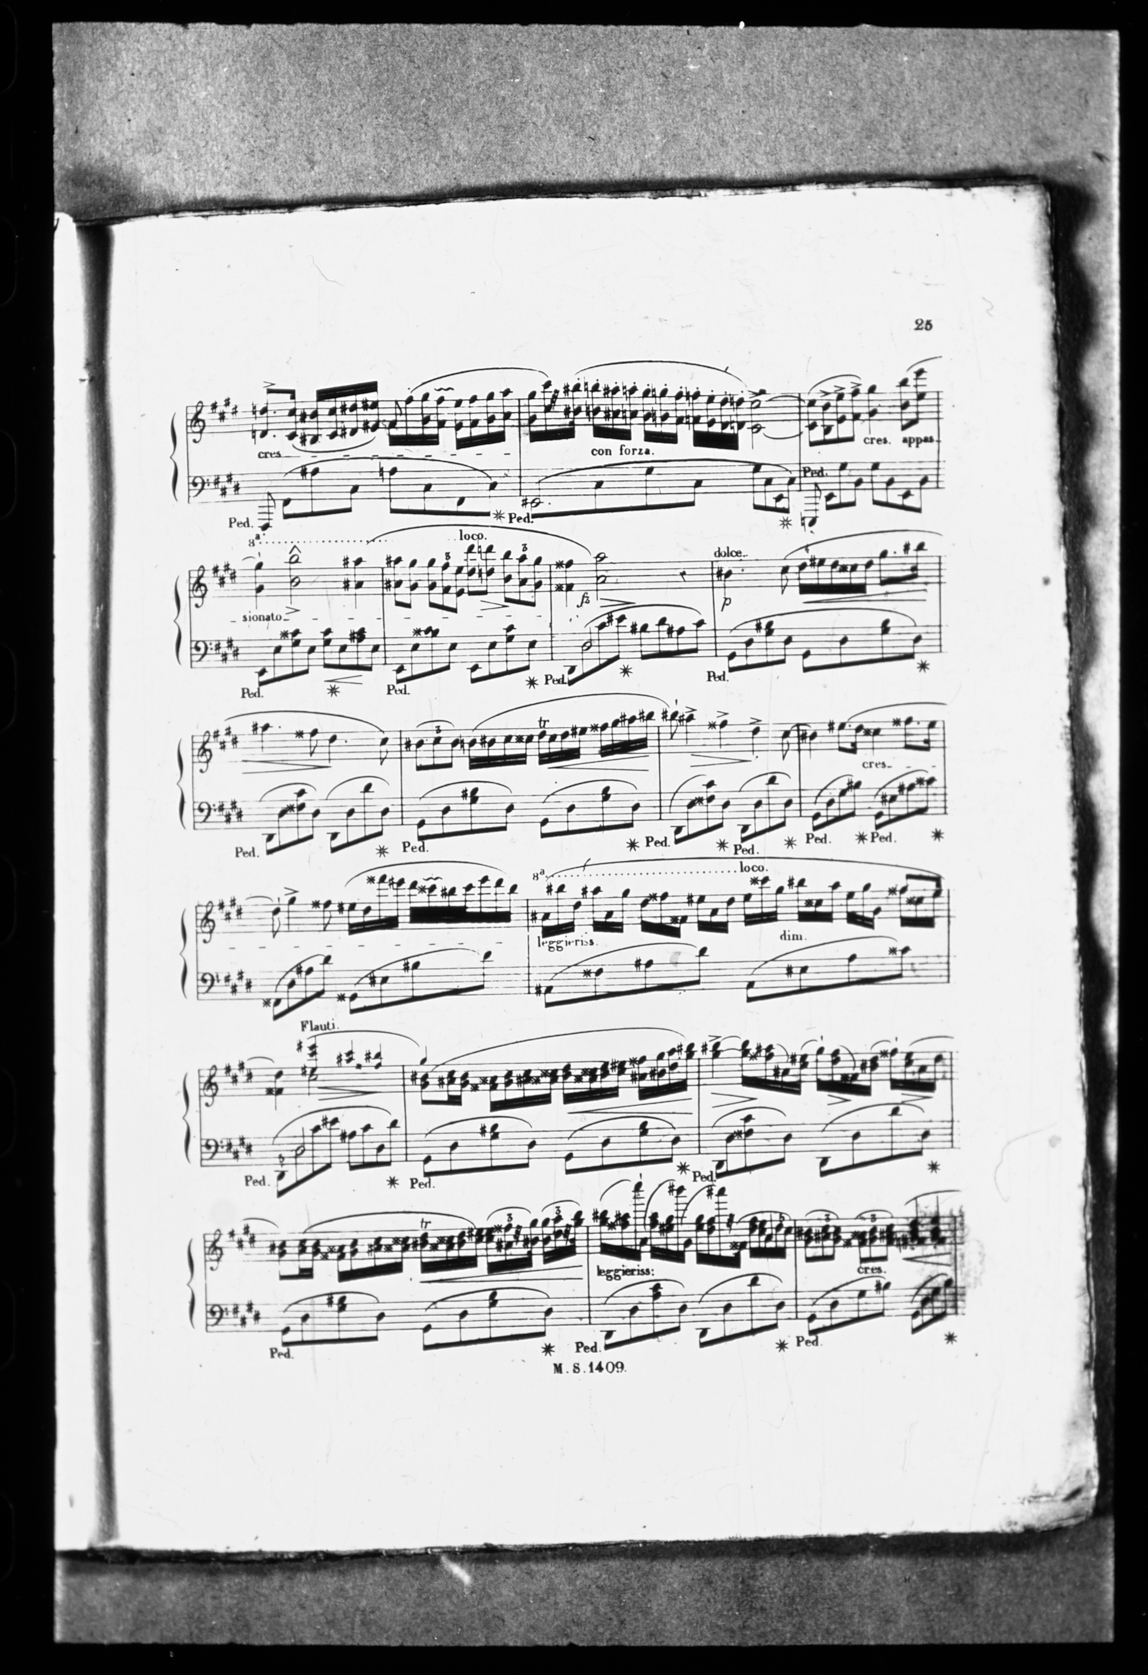 25
cres. con forza. cres. appas
Ped. Ped. Ped.
8ª loco. dolce.
sionato fz p
Ped. Ped. Ped. Ped.
3 tr
cres.
Ped. Ped. Ped. Ped. Ped. Ped.
8ª loco.
leggieriss. dim.
Flauti.
Ped. Ped. Ped.
tr 3 3 3 3
leggieriss: cres.
Ped. Ped. Ped.
M.S.1409.